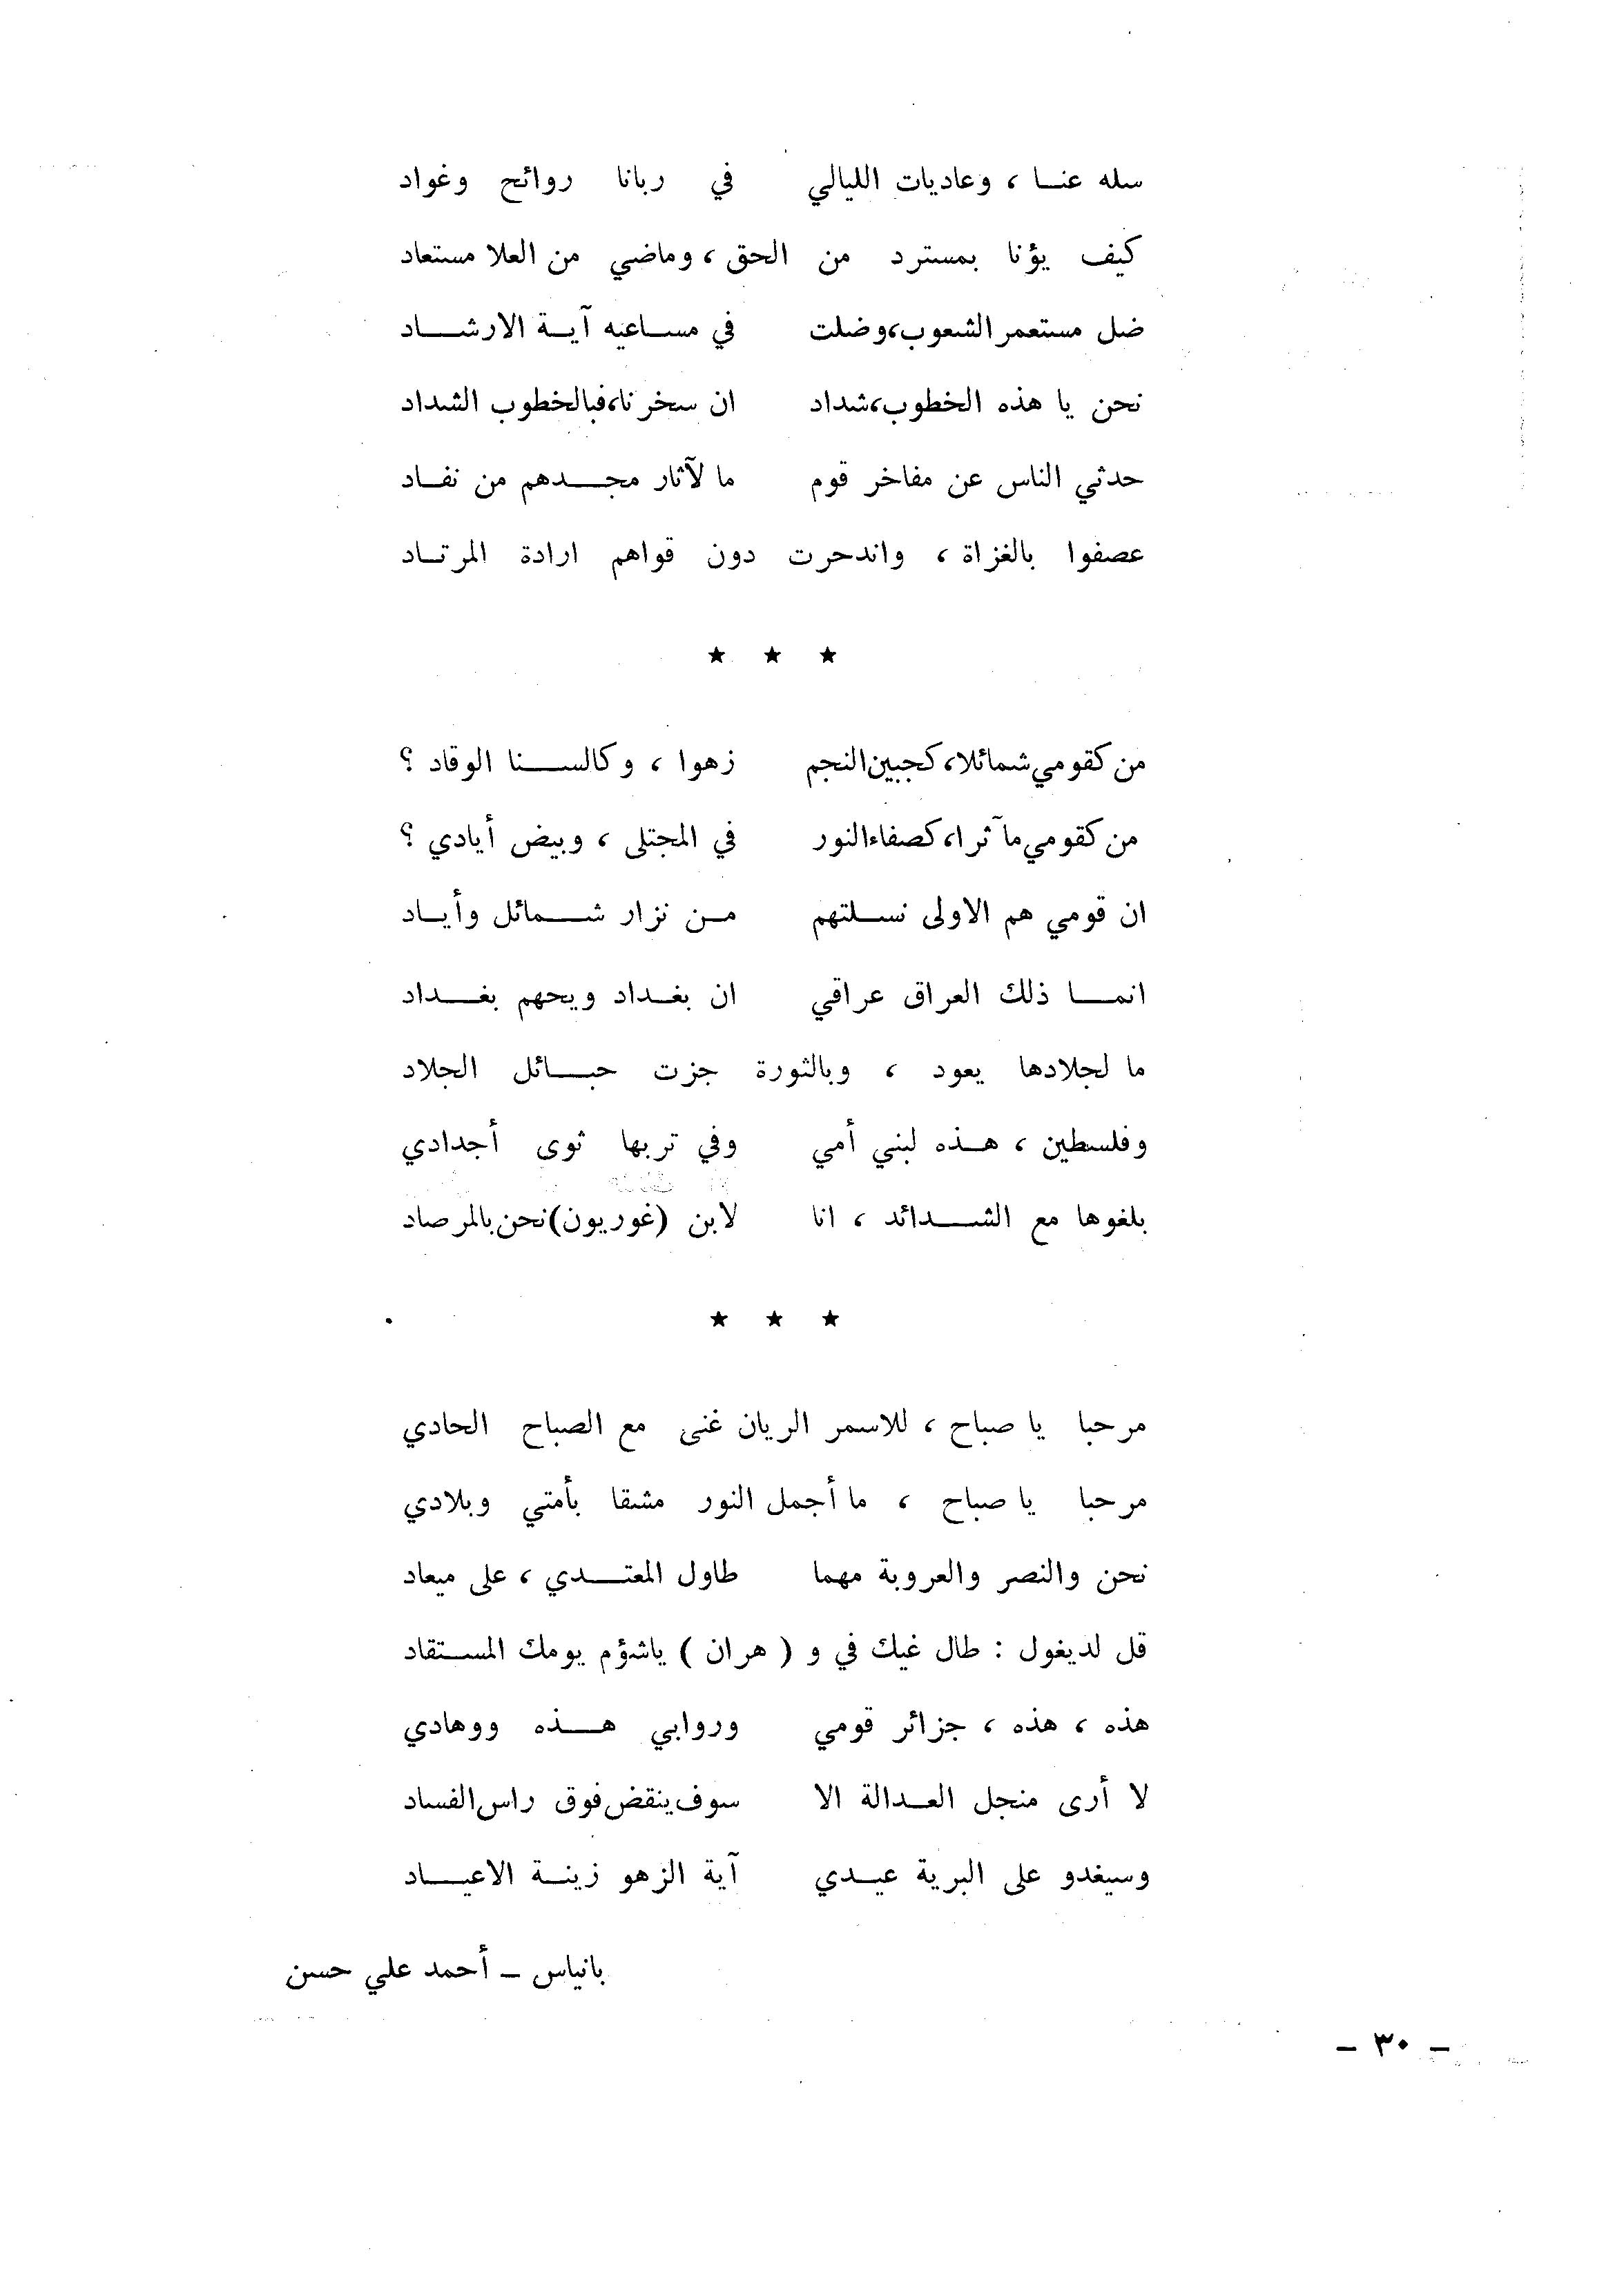 سله عنا ، وعاديات الليالي في ربانا روائح وغواد
كيف يؤنا بمسترد من الحق ، وماضي من العلا مستعاد
ضل مستعمر الشعوب، وضلت في مساعيه آية الارشاد
نحن يا هذه الخطوب، شداد ان سخرنا، فبالخطوب الشداد
حدثي الناس عن مفاخر قوم ما لآثار مجدهم من نفاد
عصفوا بالغزاة ، واندحرت دون قواهم ارادة المرتاد
★ ★ ★
من كقومي شمائلا، كجبين النجم زهوا ، وكالسنا الوقاد ؟
من كقومي مآثرا، كصفاء النور في المجتلى ، وبيض أيادي ؟
ان قومي هم الاولى نسلتهم من نزار شمائل وأياد
انما ذلك العراق عراقي ان بغداد ويحهم بغداد
ما لجلادها يعود ، وبالثورة جزت حبائل الجلاد
وفلسطين ، هذه لبني أمي وفي تربها ثوى أجدادي
بلغوها مع الشدائد ، انا لابن (غوريون) نحن بالمرصاد
★ ★ ★
مرحبا يا صباح ، للاسمر الريان غنى مع الصباح الحادي
مرحبا يا صباح ، ما أجمل النور مشقا بأمتي وبلادي
نحن والنصر والعروبة مهما طاول المعتدي ، على ميعاد
قل لديغول : طال غيك في و ( هران ) ياشؤم يومك المستقاد
هذه ، هذه ، جزائر قومي وروابي هذه ووهادي
لا أرى منجل العدالة الا سوف ينقض فوق راس الفساد
وسيغدو على البرية عيدي آية الزهو زينة الاعياد
بانياس – أحمد علي حسن
– ٣٠ –